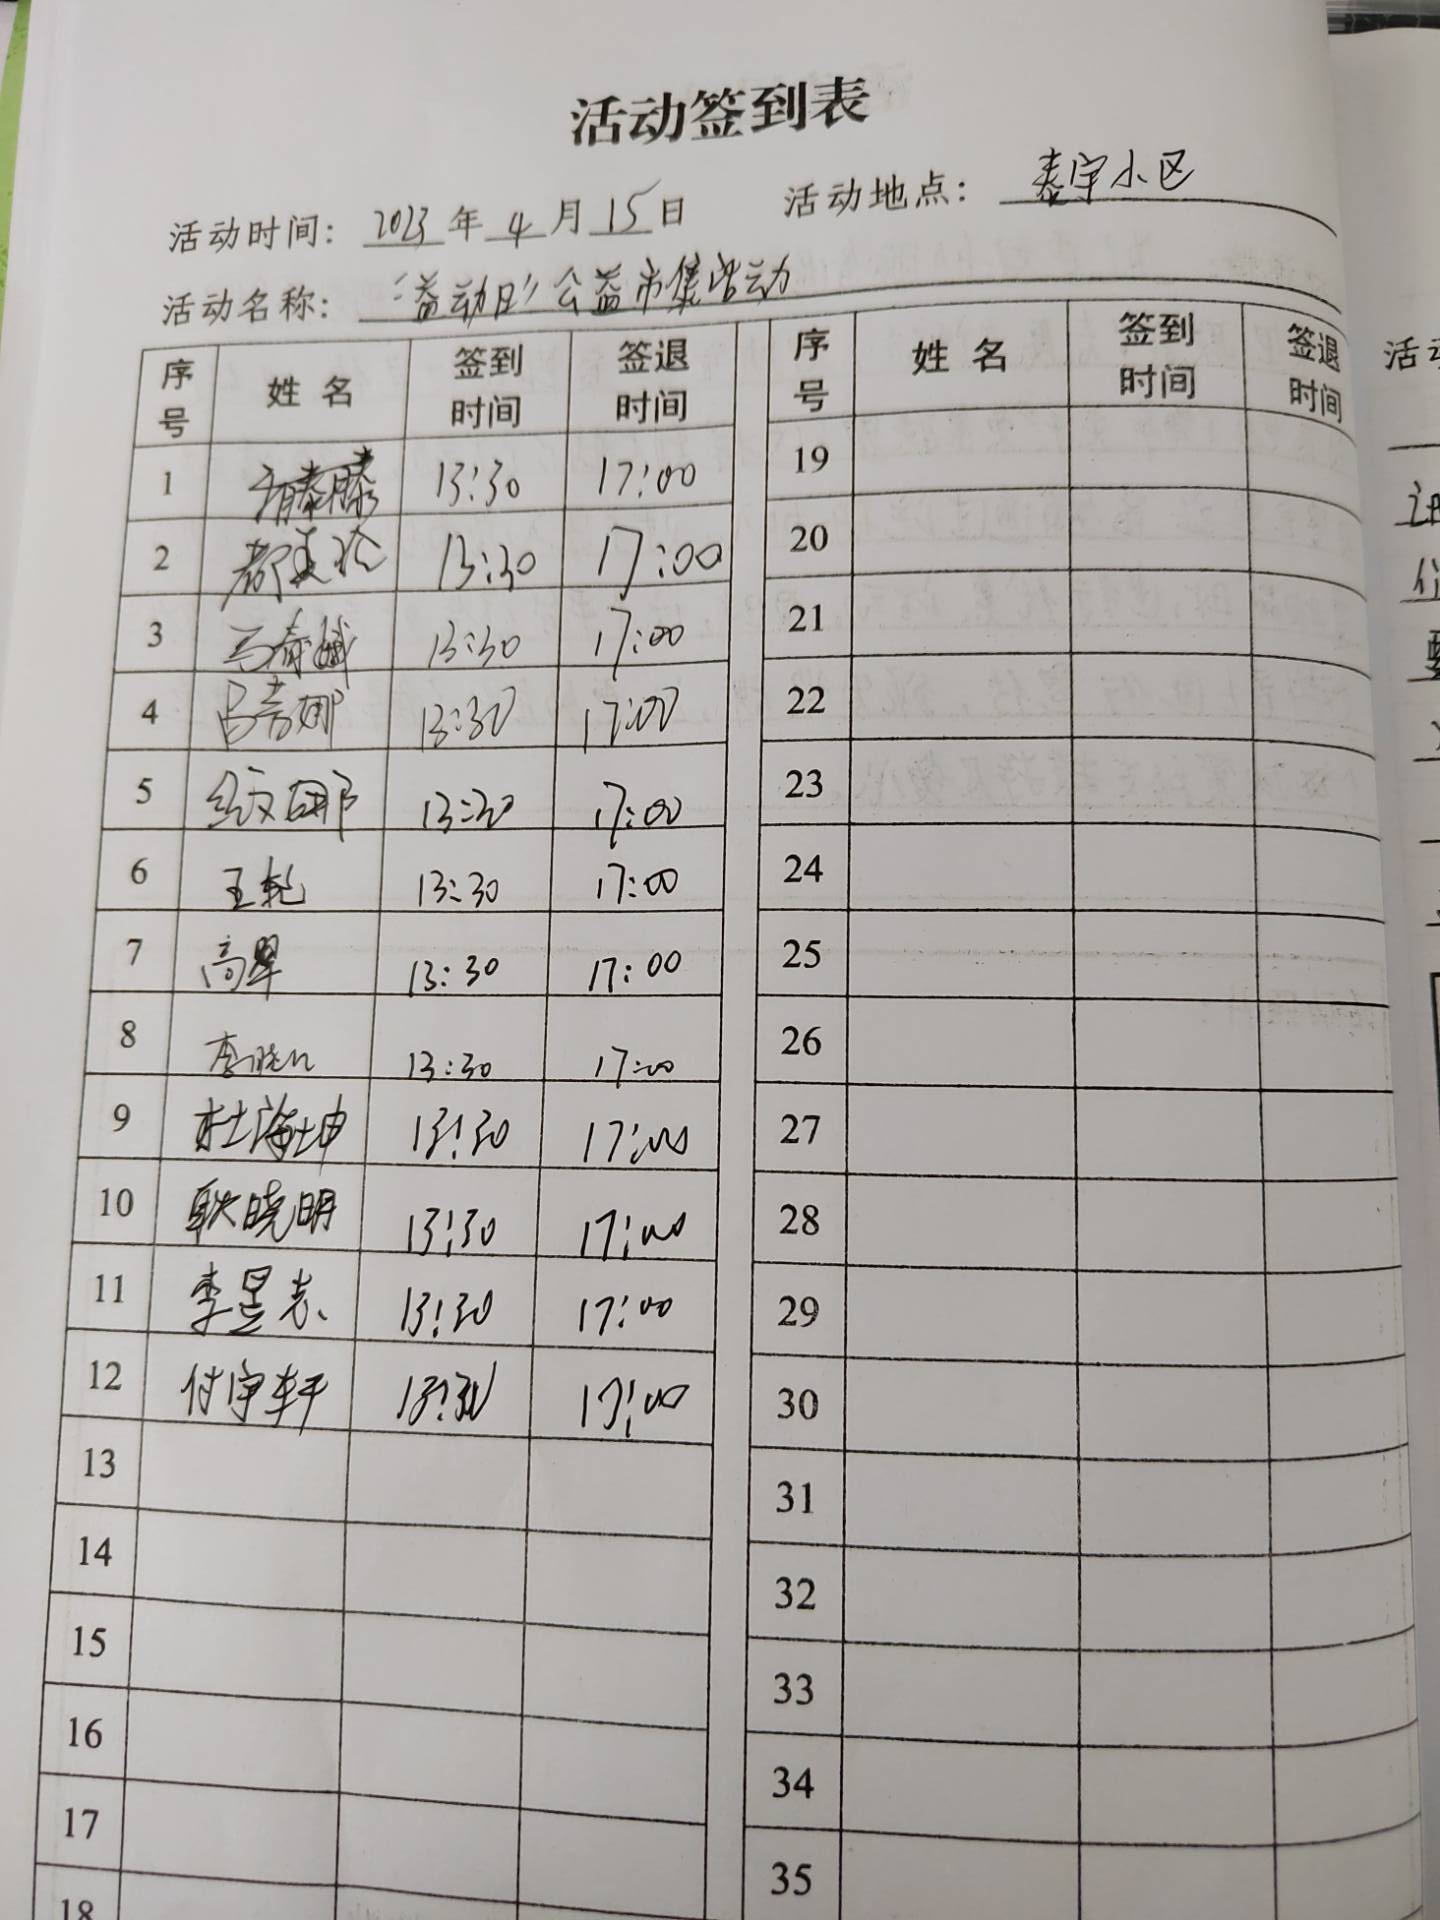 活动签到表
活动时间：2023年4月15日 活动地点：泰宇小区
活动名称：“益动日”公益市集活动
序号 姓名 签到时间 签退时间 序号 姓名 签到时间 签退时间
1 13:30 17:00 19
2 13:30 17:00 20
3 13:30 17:00 21
4 13:30 17:00 22
5 13:30 17:00 23
6 王乾 13:30 17:00 24
7 高翠 13:30 17:00 25
8 13:30 17:00 26
9 杜海坤 13:30 17:00 27
10 耿晓明 13:30 17:00 28
11 李昱志 13:30 17:00 29
12 付宇轩 13:30 17:00 30
13 31
14 32
15 33
16 34
17 35
18
活动